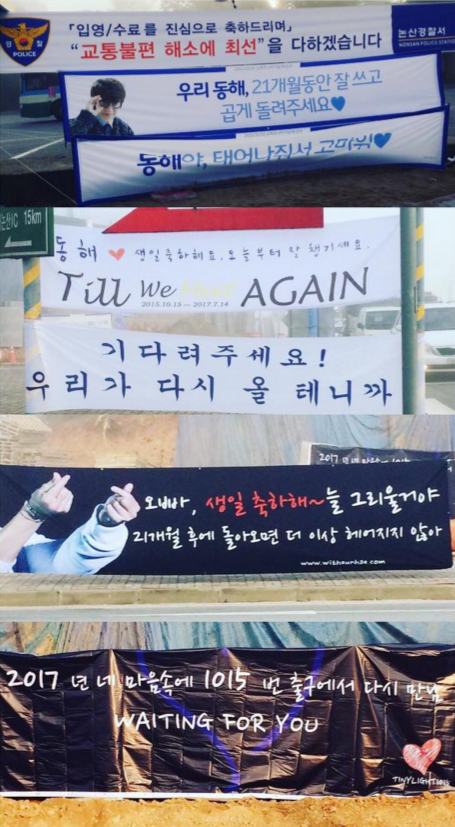 「입영/수료를 진심으로 축하드리며」
경찰
POLICE
"교통불편 해소에 최선"을 다하겠습니다
논산경찰서
NONSAN POLICE STATION
우리 동해, 21개월동안 잘 쓰고
곱게 돌려주세요♥
동해야, 태어나줘서 고마워♥
논산IC 15km
동해 ♥ 생일축하해요. 오늘부터 잘 챙기세요.
Till We Meet AGAIN
2015.10.15 — 2017.7.14
기다려주세요!
우리가 다시 올 테니까
2017 년 네 마음속에 1015
오빠, 생일 축하해~늘 그리울거야
21개월 후에 돌아오면 더 이상 헤어지지 않아
www.withourhae.com
2017 년 네 마음속에 1015 번 출구에서 다시 만남
WAITING FOR YOU
TINYLIGHT1015